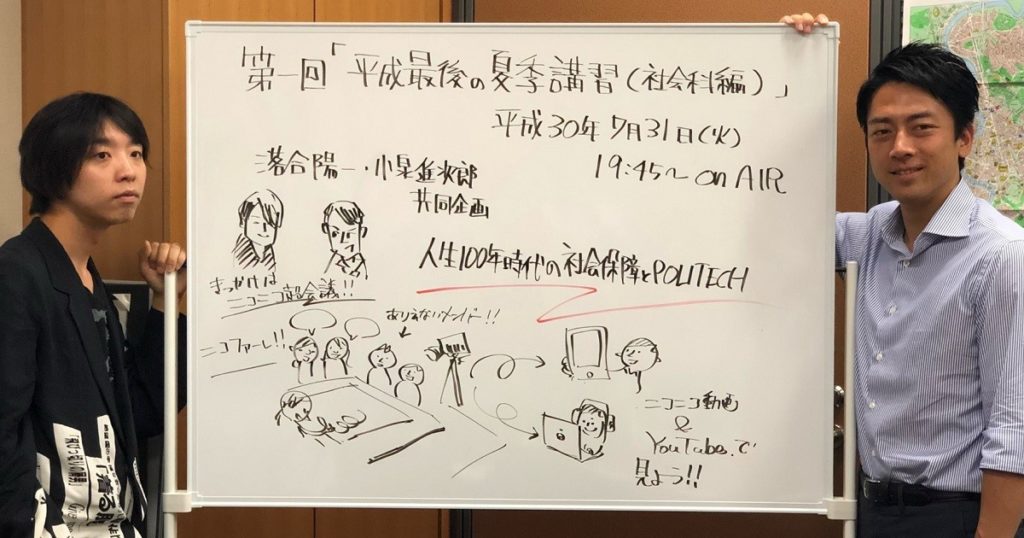 第一回「平成最後の夏季講習(社会科編)」
平成30年7月31日(火)
19:45〜 on AIR
落合陽一・小泉進次郎
共同企画
人生100年時代の社会保障とPOLITECH
きっかけは
ニコニコ超会議!!
ニコファーレ!!
ありえないメンバー!!
ニコニコ動画
&
YouTubeで
見よう!!